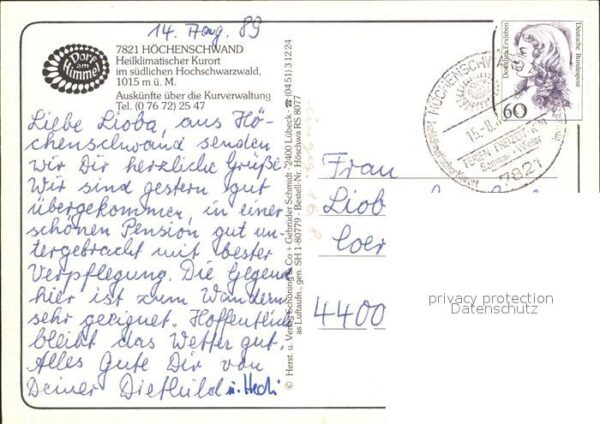 14. Aug. 89
Dorf
am
Himmel
7821 HÖCHENSCHWAND
Heilklimatischer Kurort
im südlichen Hochschwarzwald,
1015 m ü. M.
Auskünfte über die Kurverwaltung
Tel. (0 76 72) 25 47
Liebe Lioba, aus Hö-
chenschwand senden
wir Dir herzliche Grüße.
Wir sind gestern gut
übergekommen, in einer
schönen Pension gut un-
tergebracht mit bester
Verpflegung. Die Gegend
hier ist zum Wandern
sehr geeignet. Hoffentlich
bleibt das Wetter gut.
Alles Gute Dir von
Deiner Diethild u. Hedi
© Herst. u. Verlag Schöning & Co + Gebrüder Schmidt · 2400 Lübeck · ☎ (04 51) 3 12 24
as Luftaufn., gen. SH 1-80779 · Bestell-Nr. Höschwa RS 8077
Dorothea Erxleben
Deutsche Bundespost
60
HÖCHENSCHWAND
15.-8.
Sommer + Winter
7821
Frau
Liob
Coer
4400
privacy protection
Datenschutz